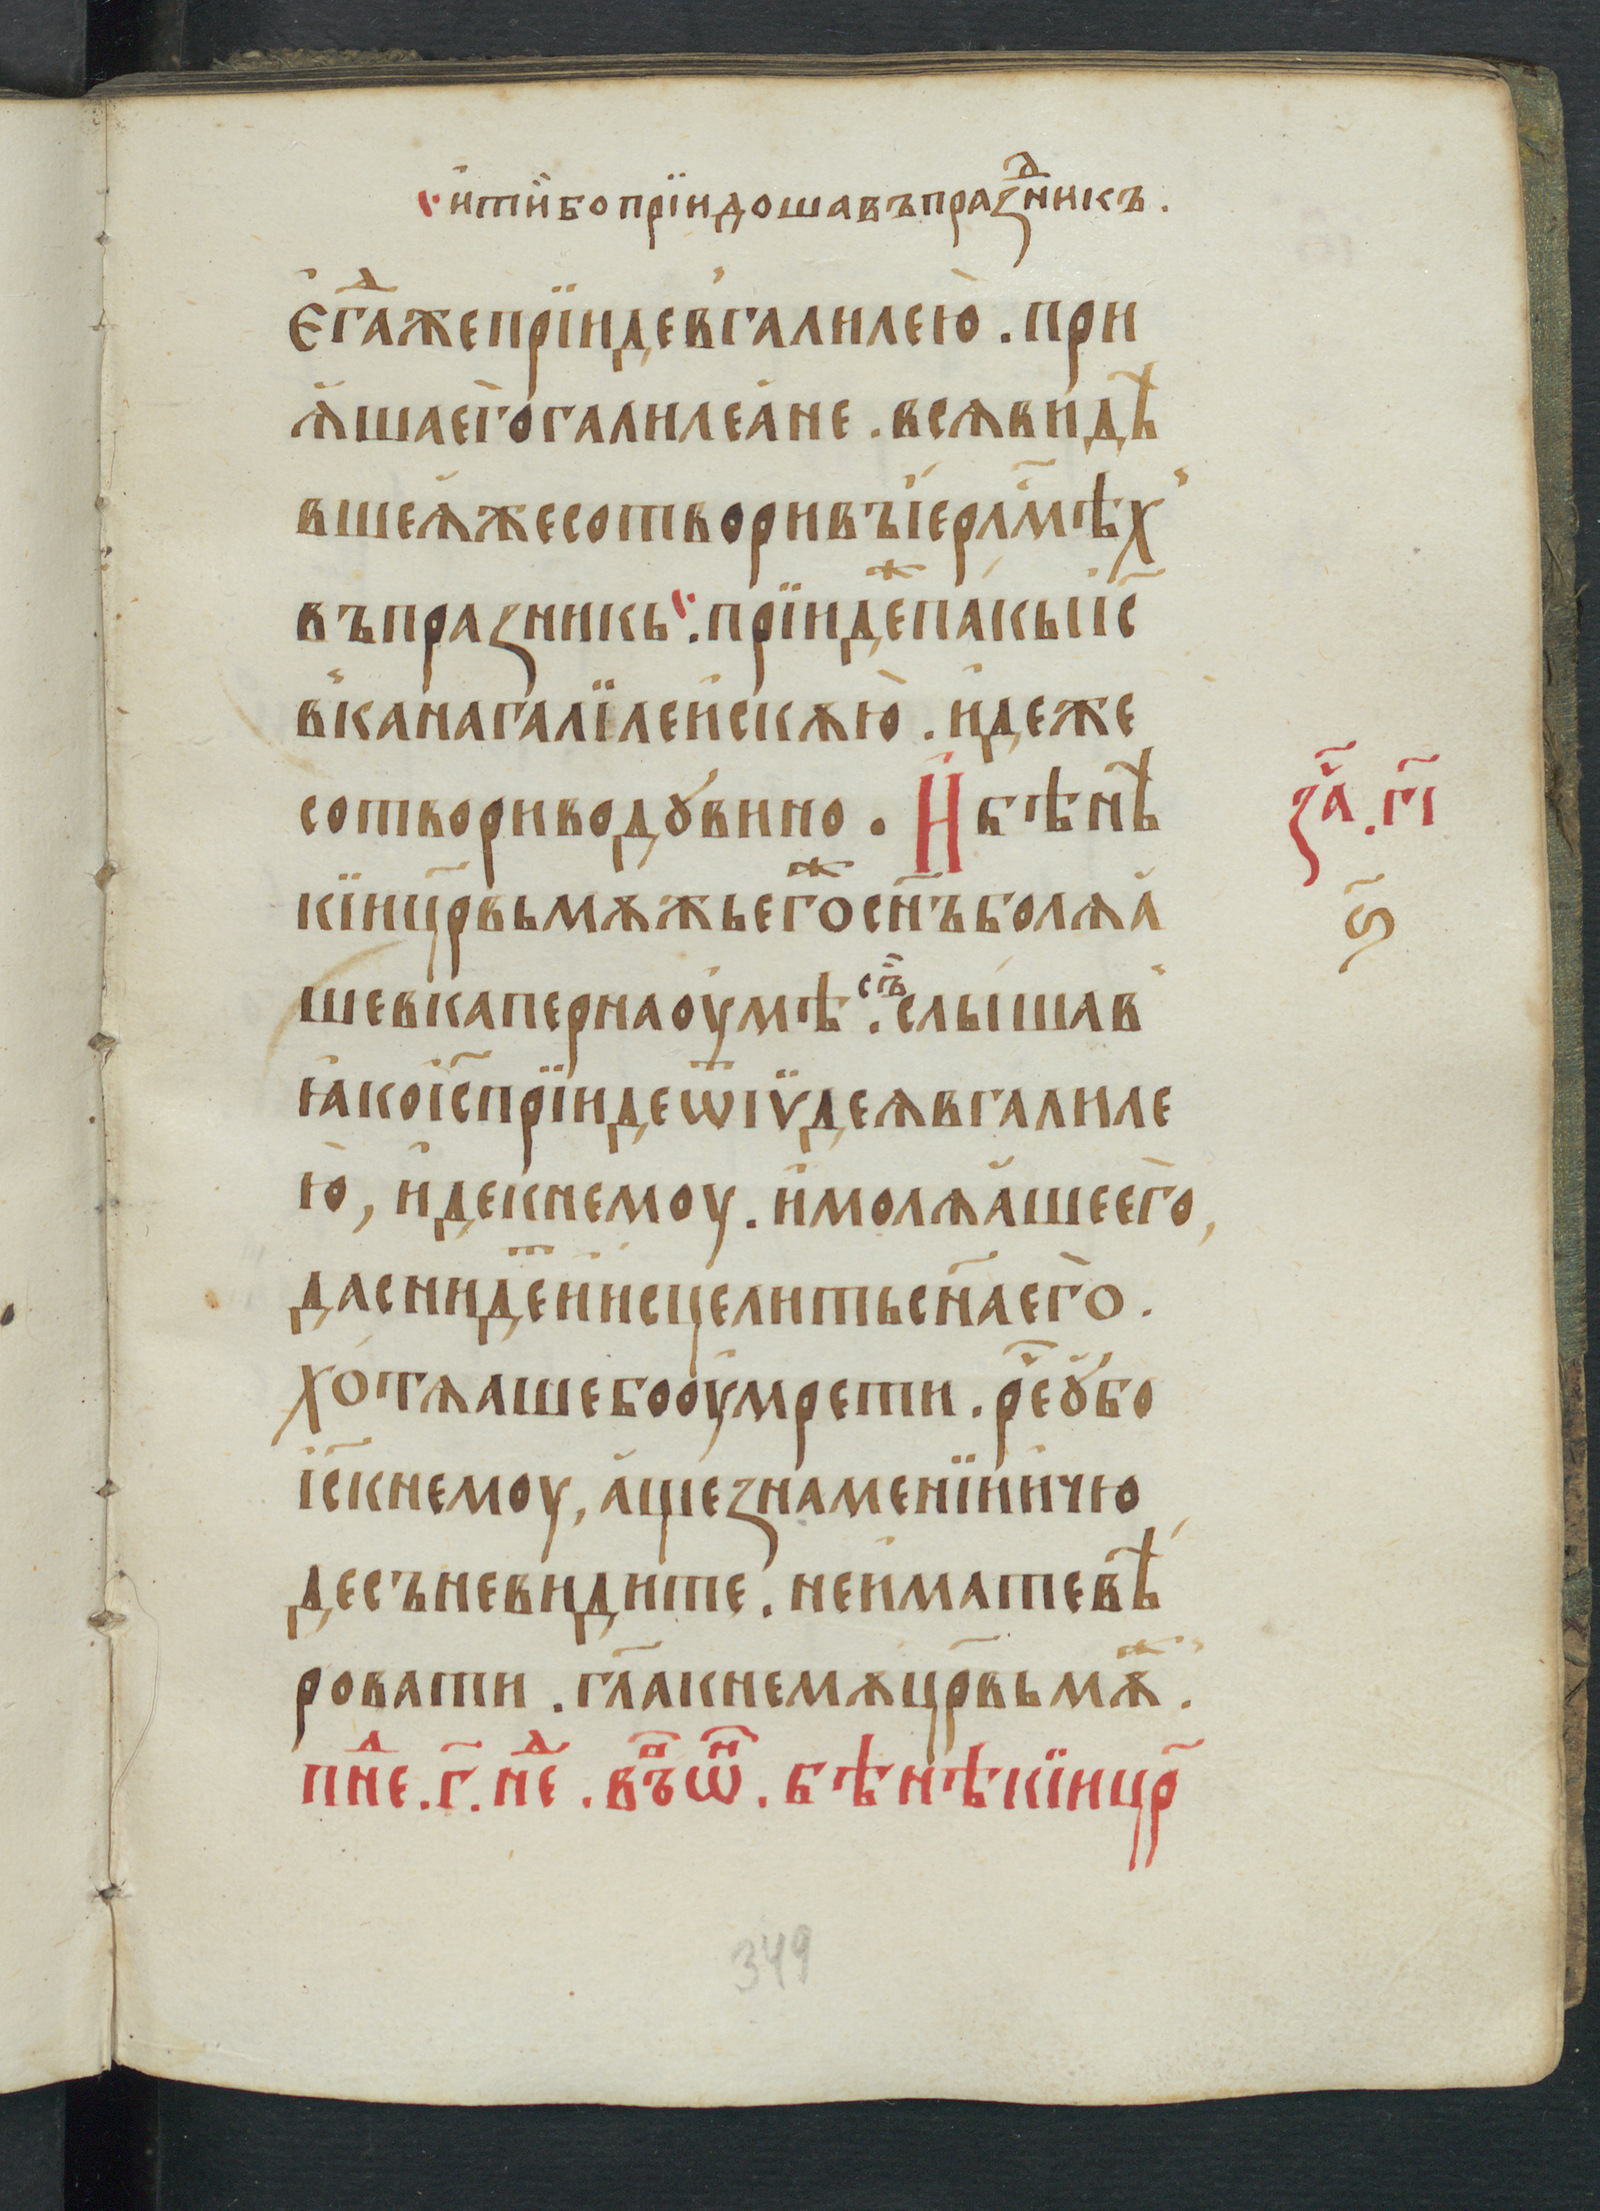 итїибопрїидошавъпраꙁⷣникъ.
Єгⷣажепрїидевгалилею̀.при
ѧ̆шаего̀галилеа́не.всѧвидѣ
вшеѧ́жесотворивъі́ерⷭл҃мѣх
въпраꙁникь.прїидеⷤпа́кыіс҃
вканагалїлеискѫю̀.и́деже
сотвориводꙋвино. И́бѣнѣ
ꙁⷱ҇а.г҃і
кїицр҃вьмѫжьегоⷤсн҃ъболѧӑ
ѕ҃
шевкапернаоумѣ.слы́шав
съп
ꙗ́коіс҃прїидеѿіѵ̈деѧвгалиле
ю̀, и́декнемоу.и́молѧӑшеего̀,
даснидеⷮии́сцелитьсн҃аего̀.
хо́тѧашебооу́мрети.реⷱ҇ꙋ́бо
іс҃кнемоу, а́щеꙁнаменїии́чю
десъневидите.неи́матевѣ
ровати.гл҃акнемѫцр҃вьмѫⷤ.
пнеⷣ.г҃.неⷣ.въⷩ҇ѿⷩ҇.бѣнѣкїицр҃
349